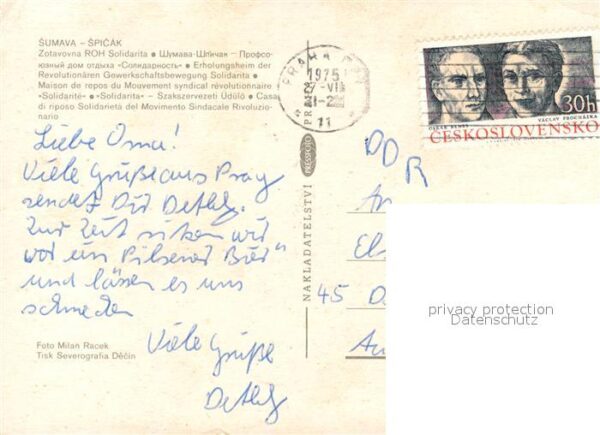 ŠUMAVA – ŠPIČÁK
Zotavovna ROH Solidarita • Шумава-Шпичак – Профсо-
юзный дом отдыха «Солидарность» • Erholungsheim der
Revolutionären Gewerkschaftsbewegung Solidarita •
Maison de repos du Mouvement syndical révolutionnaire
«Solidarité» • «Solidarita» – Szakszervezeti Üdülő • Casa
di riposo Solidarietà del Movimento Sindacale Rivoluzio-
nario
Liebe Oma!
Viele Grüße aus Prag
sendet Dir Detlef.
Zur Zeit sitzen wir
vor ein "Pilsener Bier"
und lassen es uns
schmecken
Viele Grüße
Detlef
Foto Milan Racek
Tisk Severografia Děčín
NAKLADATELSTVÍ PRESSFOTO
PRAHA
1975
11
30h
OSKAR BENEŠ
VÁCLAV PROCHÁZKA
ČESKOSLOVENSKO
DDR
45
privacy protection
Datenschutz